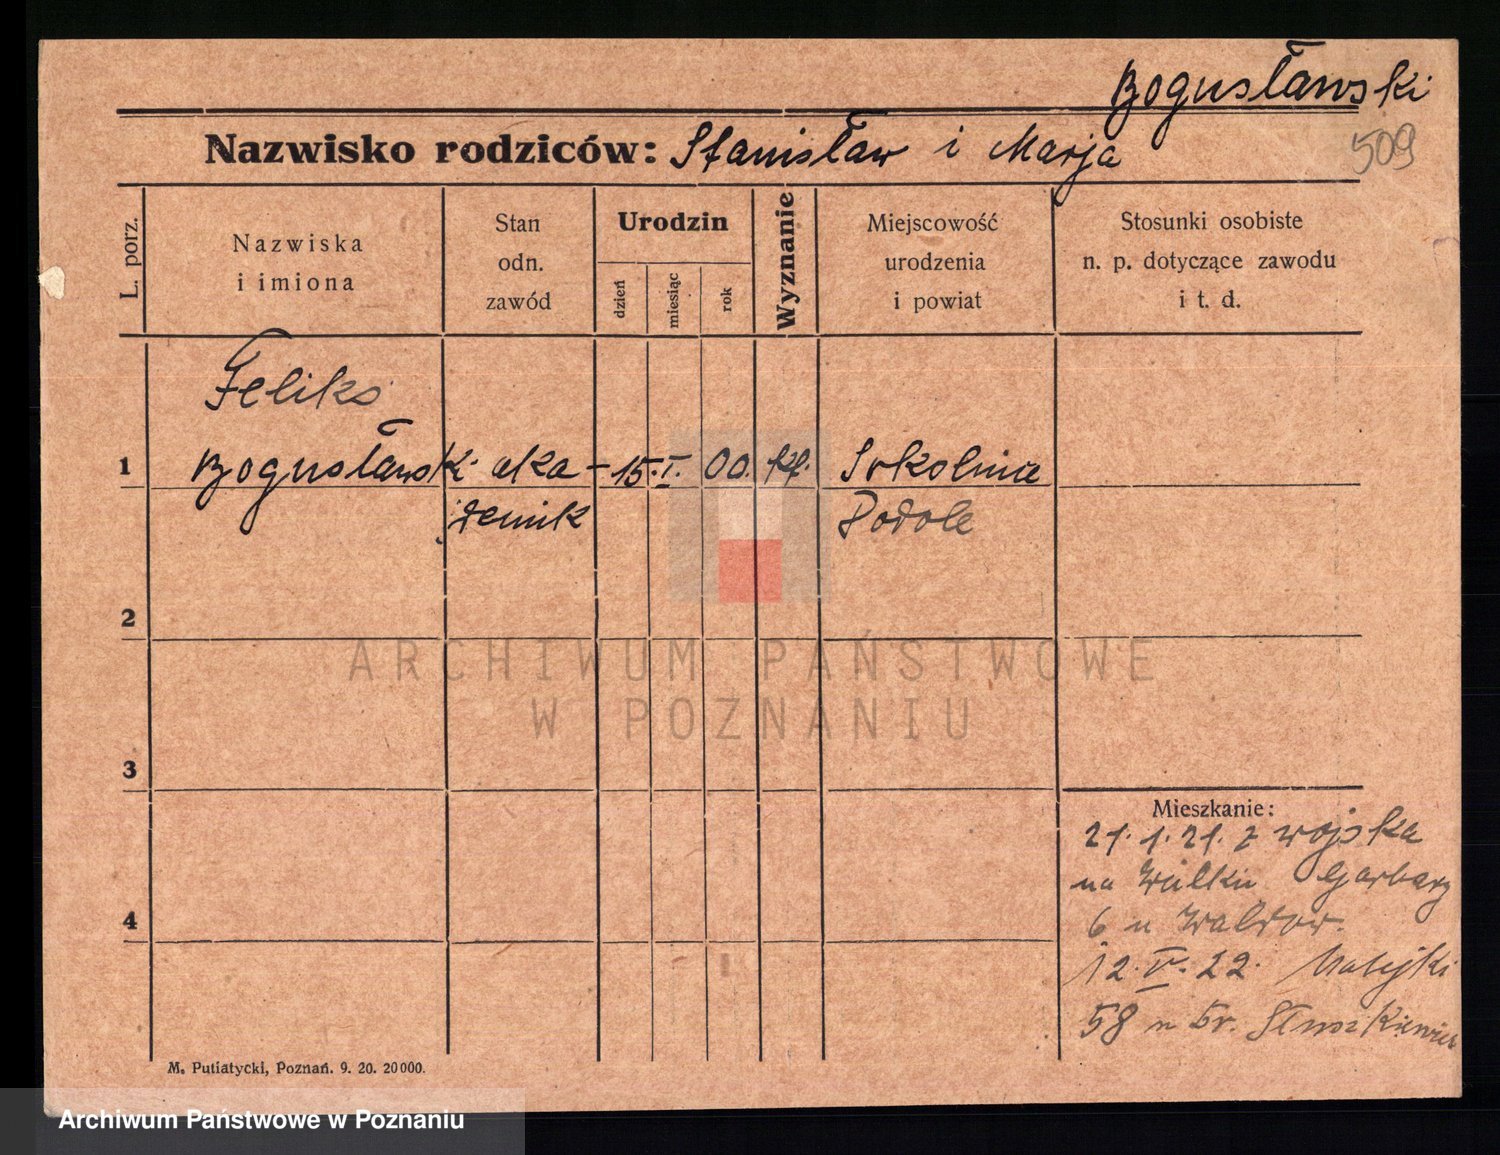 Bogusławski
509
Nazwisko rodziców: Stanisław i Marja
L. porz.
Nazwiska
i imiona
Stan
odn.
zawód
Urodzin
dzień
miesiąc
rok
Wyznanie
Miejscowość
urodzenia
i powiat
Stosunki osobiste
n. p. dotyczące zawodu
i t. d.
Feliks
1 Bogusławsk. aka- 15. I. 00. kt.
demik Podole
2
3
4
Mieszkanie:
21. 1. 21. z wojska
na Garbary
6 u
12. V. 22. Matejki
58 u
M. Putiatycki, Poznań. 9. 20. 20000.
ARCHIWUM PAŃSTWOWE
W POZNANIU
Archiwum Państwowe w Poznaniu